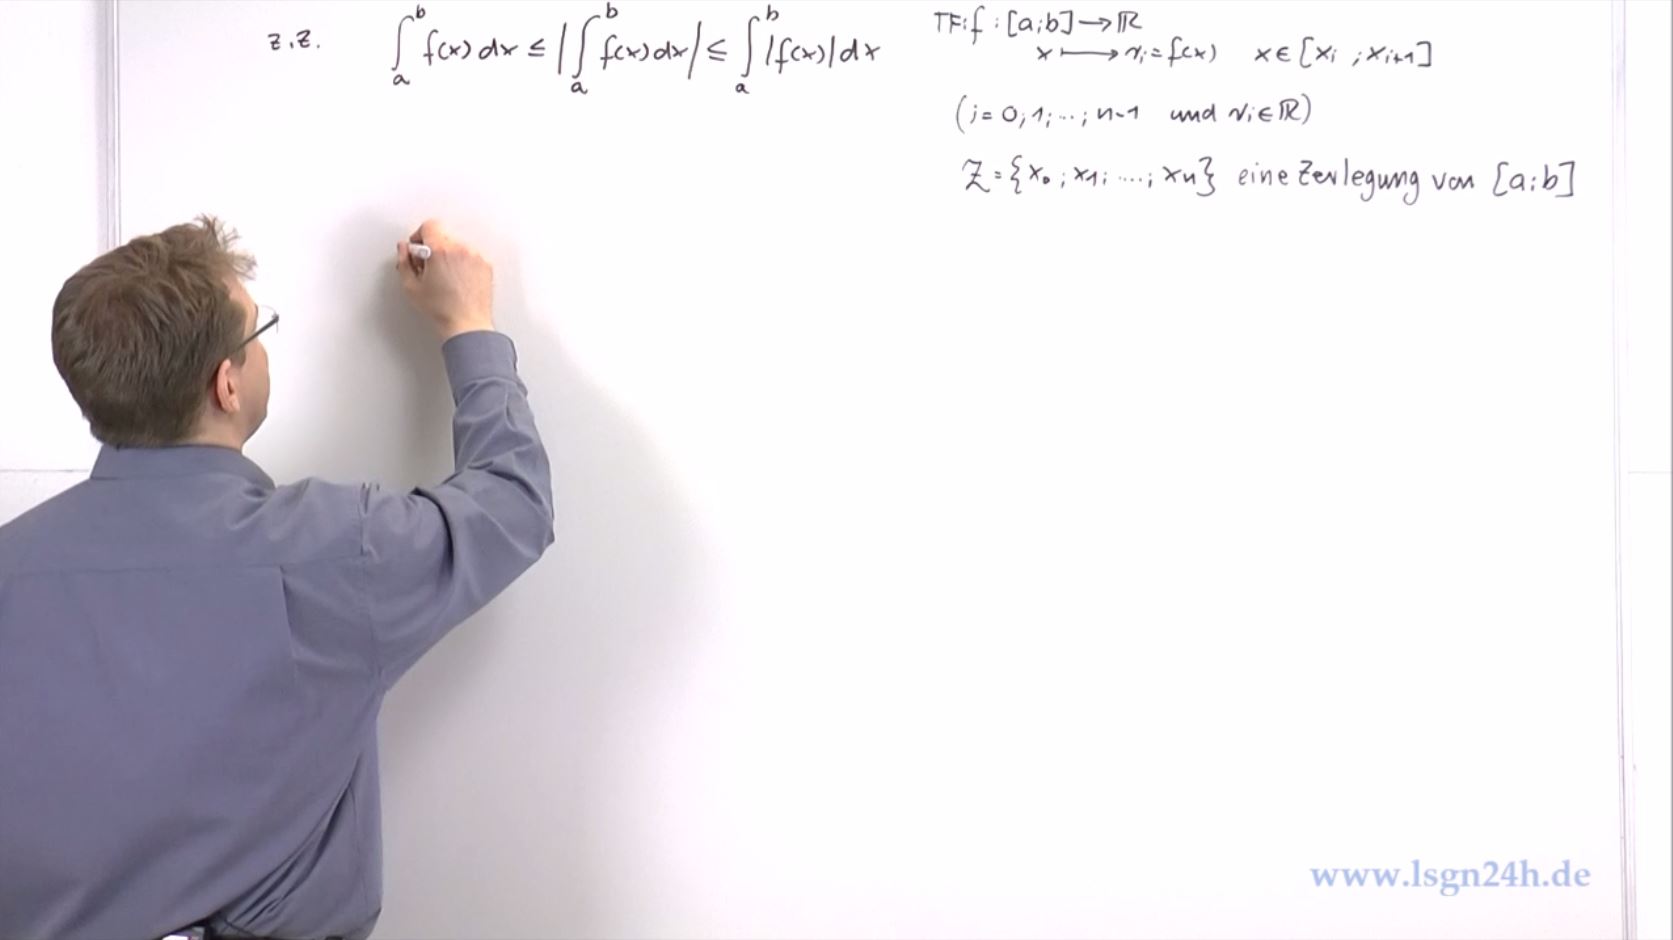 z.z. ∫_a^b f(x) dx ≤ |∫_a^b f(x) dx| ≤ ∫_a^b |f(x)| dx
TF: f : [a;b] → ℝ
x ⟼ r_i = f(x) x ∈ [x_i ; x_{i+1}]
(i = 0; 1; ...; n-1 und r_i ∈ ℝ)
Z = {x_0 ; x_1 ; ....; x_n} eine Zerlegung von [a;b]
www.lsgn24h.de